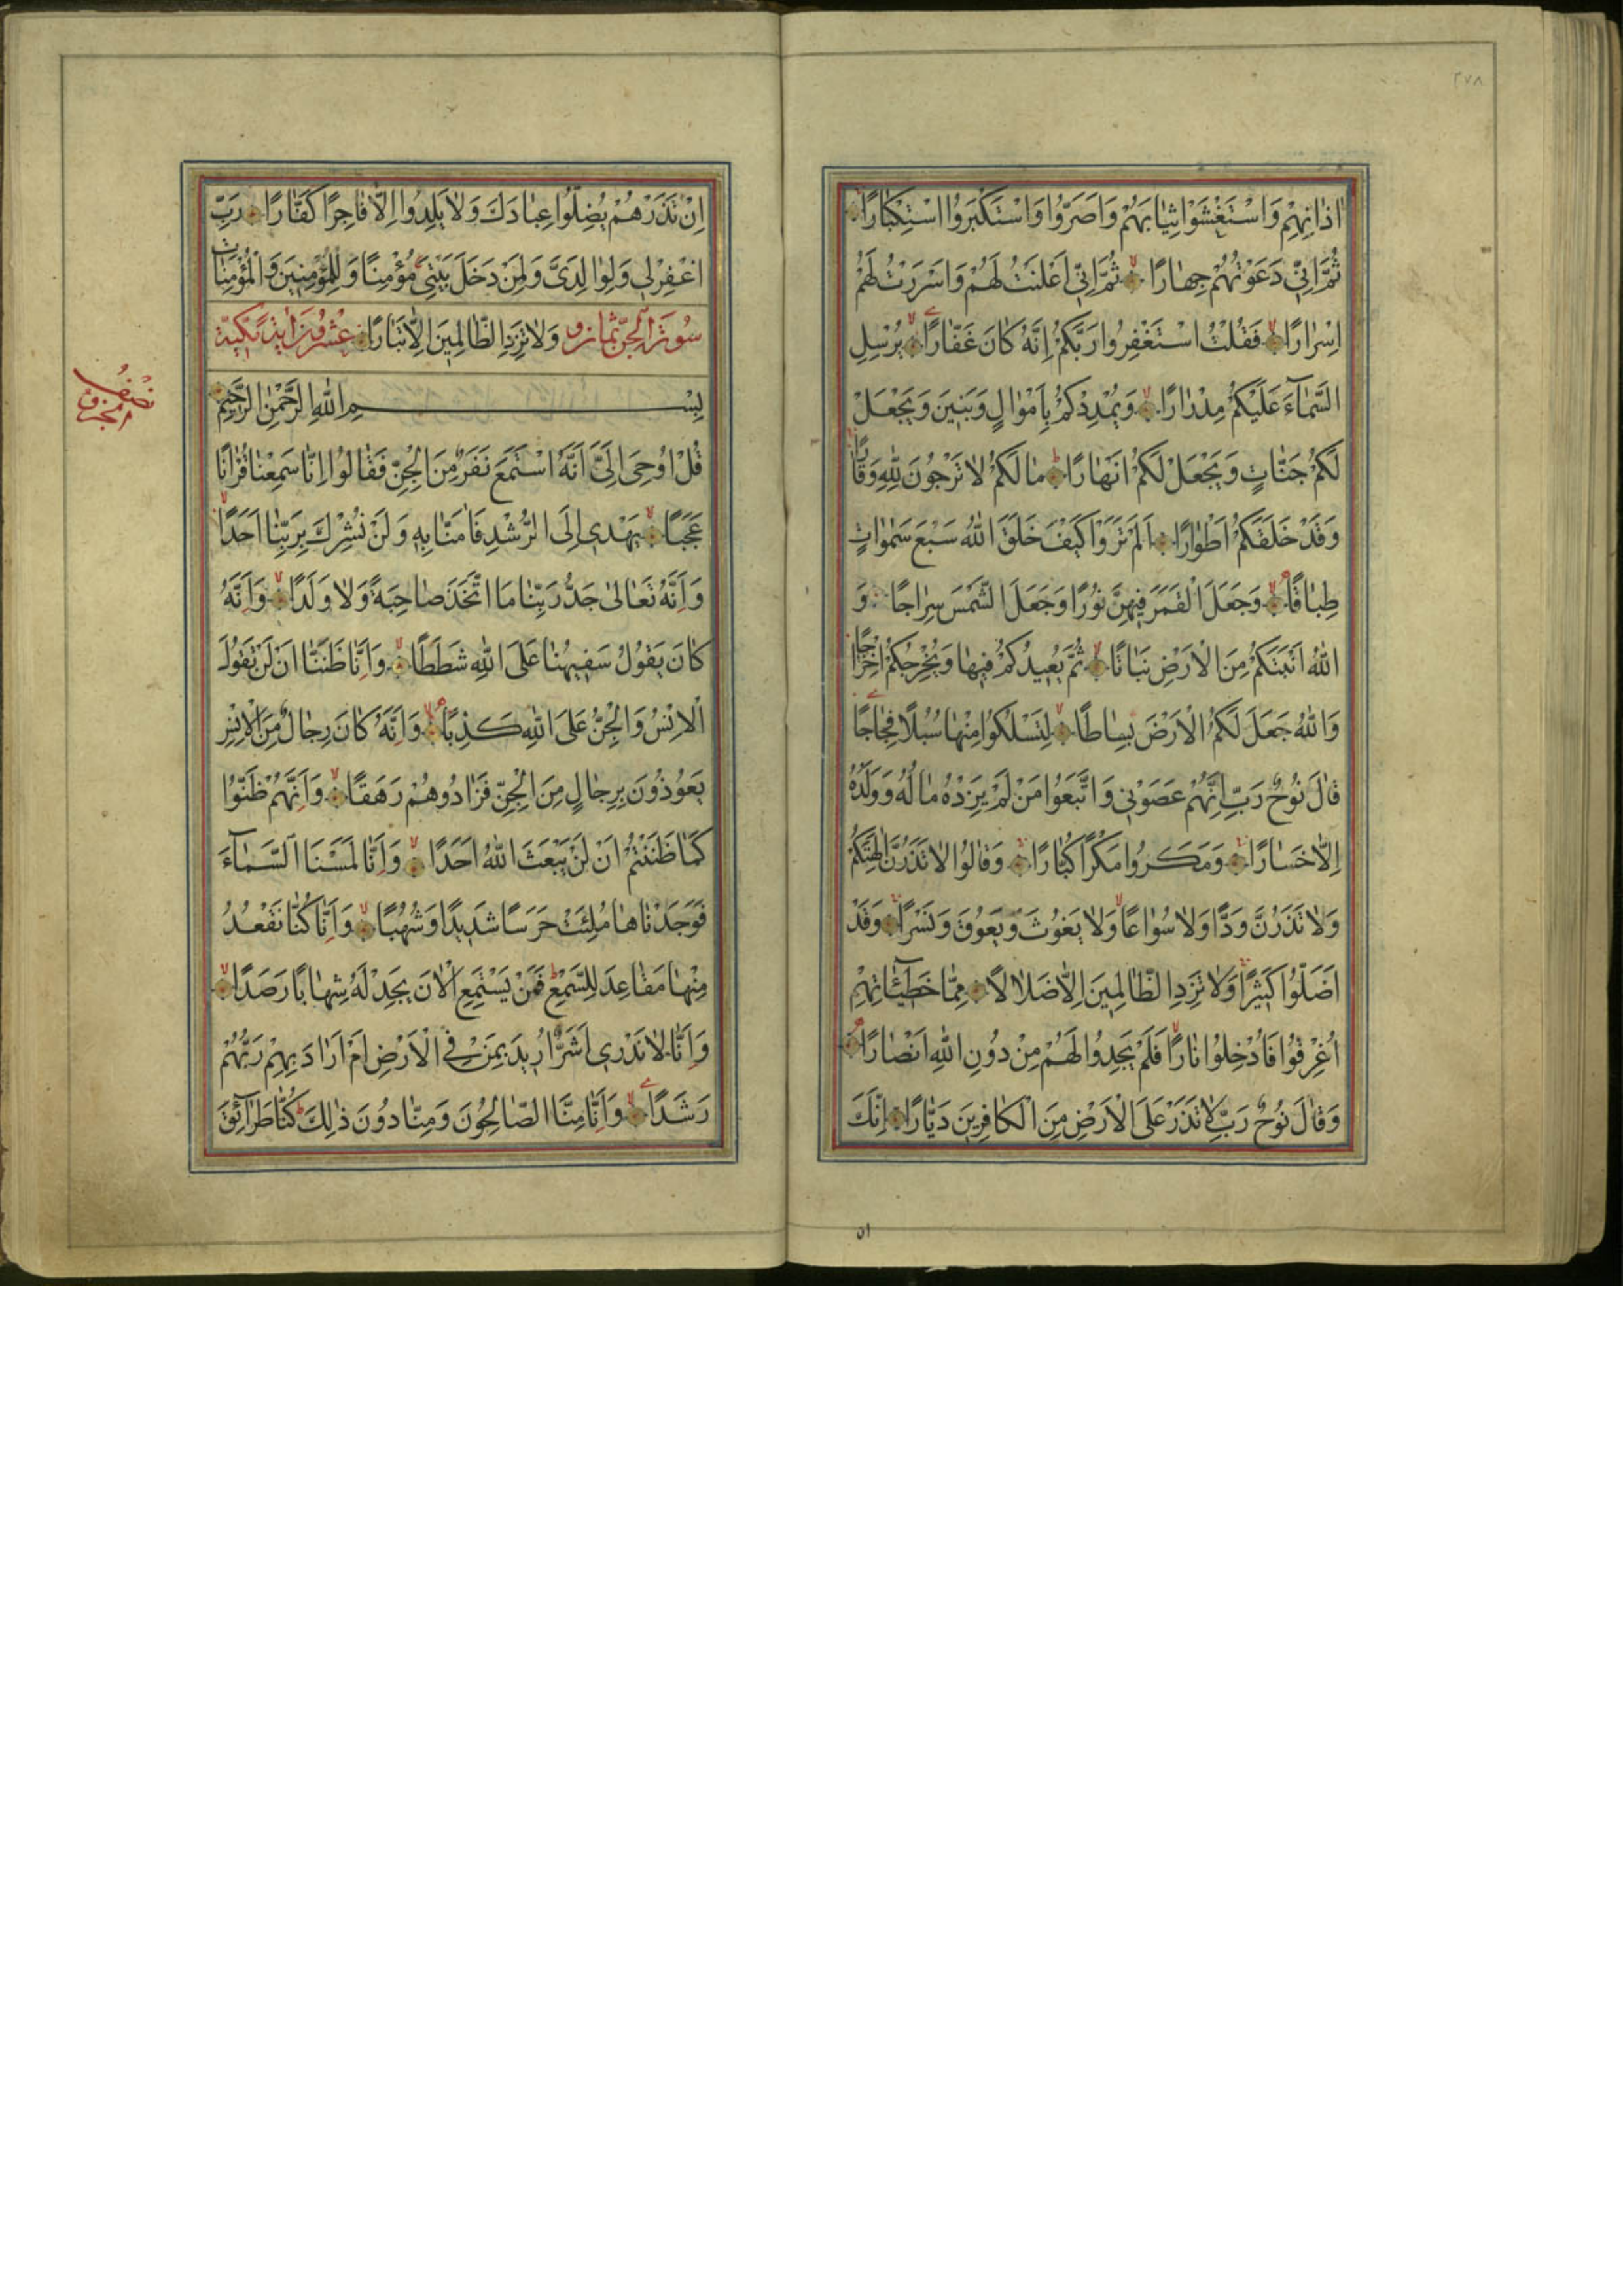 ٢٧٨
اٰذَانِهِمْ وَاسْتَغْشَوْا ثِيَابَهُمْ وَاَصَرُّوا وَاسْتَكْبَرُوا اسْتِكْبَارًا
ثُمَّ اِنِّي دَعَوْتُهُمْ جِهَارًا ثُمَّ اِنِّي اَعْلَنْتُ لَهُمْ وَاَسْرَرْتُ لَهُمْ
اِسْرَارًا فَقُلْتُ اسْتَغْفِرُوا رَبَّكُمْ اِنَّهُ كَانَ غَفَّارًا يُرْسِلِ
السَّمَاءَ عَلَيْكُمْ مِدْرَارًا وَيُمْدِدْكُمْ بِاَمْوَالٍ وَبَنِينَ وَيَجْعَلْ
لَكُمْ جَنَّاتٍ وَيَجْعَلْ لَكُمْ اَنْهَارًا مَا لَكُمْ لَا تَرْجُونَ لِلّٰهِ وَقَارًا
وَقَدْ خَلَقَكُمْ اَطْوَارًا اَلَمْ تَرَوْا كَيْفَ خَلَقَ اللّٰهُ سَبْعَ سَمٰوَاتٍ
طِبَاقًا وَجَعَلَ الْقَمَرَ فِيهِنَّ نُورًا وَجَعَلَ الشَّمْسَ سِرَاجًا وَ
اللّٰهُ اَنْبَتَكُمْ مِنَ الْاَرْضِ نَبَاتًا ثُمَّ يُعِيدُكُمْ فِيهَا وَيُخْرِجُكُمْ اِخْرَاجًا
وَاللّٰهُ جَعَلَ لَكُمُ الْاَرْضَ بِسَاطًا لِتَسْلُكُوا مِنْهَا سُبُلًا فِجَاجًا
قَالَ نُوحٌ رَبِّ اِنَّهُمْ عَصَوْنِي وَاتَّبَعُوا مَنْ لَمْ يَزِدْهُ مَالُهُ وَوَلَدُهُ
اِلَّا خَسَارًا وَمَكَرُوا مَكْرًا كُبَّارًا وَقَالُوا لَا تَذَرُنَّ اٰلِهَتَكُمْ
وَلَا تَذَرُنَّ وَدًّا وَلَا سُوَاعًا وَلَا يَغُوثَ وَيَعُوقَ وَنَسْرًا وَقَدْ
اَضَلُّوا كَثِيرًا وَلَا تَزِدِ الظَّالِمِينَ اِلَّا ضَلَالًا مِمَّا خَطِيئَاتِهِمْ
اُغْرِقُوا فَاُدْخِلُوا نَارًا فَلَمْ يَجِدُوا لَهُمْ مِنْ دُونِ اللّٰهِ اَنْصَارًا
وَقَالَ نُوحٌ رَبِّ لَا تَذَرْ عَلَى الْاَرْضِ مِنَ الْكَافِرِينَ دَيَّارًا اِنَّكَ
٥١
اِنْ تَذَرْهُمْ يُضِلُّوا عِبَادَكَ وَلَا يَلِدُوا اِلَّا فَاجِرًا كَفَّارًا رَبِّ
اغْفِرْلِي وَلِوَالِدَيَّ وَلِمَنْ دَخَلَ بَيْتِيَ مُؤْمِنًا وَلِلْمُؤْمِنِينَ وَالْمُؤْمِنَاتِ
سُورَةُ الْجِنِّ ثَمَانٍ وَ وَلَا تَزِدِ الظَّالِمِينَ اِلَّا تَبَارًا عِشْرُونَ اٰيَةً مَكِّيَّة
بِسْمِ اللّٰهِ الرَّحْمٰنِ الرَّحِيمِ
نِصْفُ الْجُزْء
قُلْ اُوحِيَ اِلَيَّ اَنَّهُ اسْتَمَعَ نَفَرٌ مِنَ الْجِنِّ فَقَالُوا اِنَّا سَمِعْنَا قُرْاٰنًا
عَجَبًا يَهْدِي اِلَى الرُّشْدِ فَاٰمَنَّا بِهِ وَلَنْ نُشْرِكَ بِرَبِّنَا اَحَدًا
وَاَنَّهُ تَعَالٰى جَدُّ رَبِّنَا مَا اتَّخَذَ صَاحِبَةً وَلَا وَلَدًا وَاَنَّهُ
كَانَ يَقُولُ سَفِيهُنَا عَلَى اللّٰهِ شَطَطًا وَاَنَّا ظَنَنَّا اَنْ لَنْ تَقُولَ
الْاِنْسُ وَالْجِنُّ عَلَى اللّٰهِ كَذِبًا وَاَنَّهُ كَانَ رِجَالٌ مِنَ الْاِنْسِ
يَعُوذُونَ بِرِجَالٍ مِنَ الْجِنِّ فَزَادُوهُمْ رَهَقًا وَاَنَّهُمْ ظَنُّوا
كَمَا ظَنَنْتُمْ اَنْ لَنْ يَبْعَثَ اللّٰهُ اَحَدًا وَاَنَّا لَمَسْنَا السَّمَاءَ
فَوَجَدْنَاهَا مُلِئَتْ حَرَسًا شَدِيدًا وَشُهُبًا وَاَنَّا كُنَّا نَقْعُدُ
مِنْهَا مَقَاعِدَ لِلسَّمْعِ فَمَنْ يَسْتَمِعِ الْاٰنَ يَجِدْ لَهُ شِهَابًا رَصَدًا
وَاَنَّا لَا نَدْرِي اَشَرٌّ اُرِيدَ بِمَنْ فِي الْاَرْضِ اَمْ اَرَادَ بِهِمْ رَبُّهُمْ
رَشَدًا وَاَنَّا مِنَّا الصَّالِحُونَ وَمِنَّا دُونَ ذٰلِكَ كُنَّا طَرَائِقَ